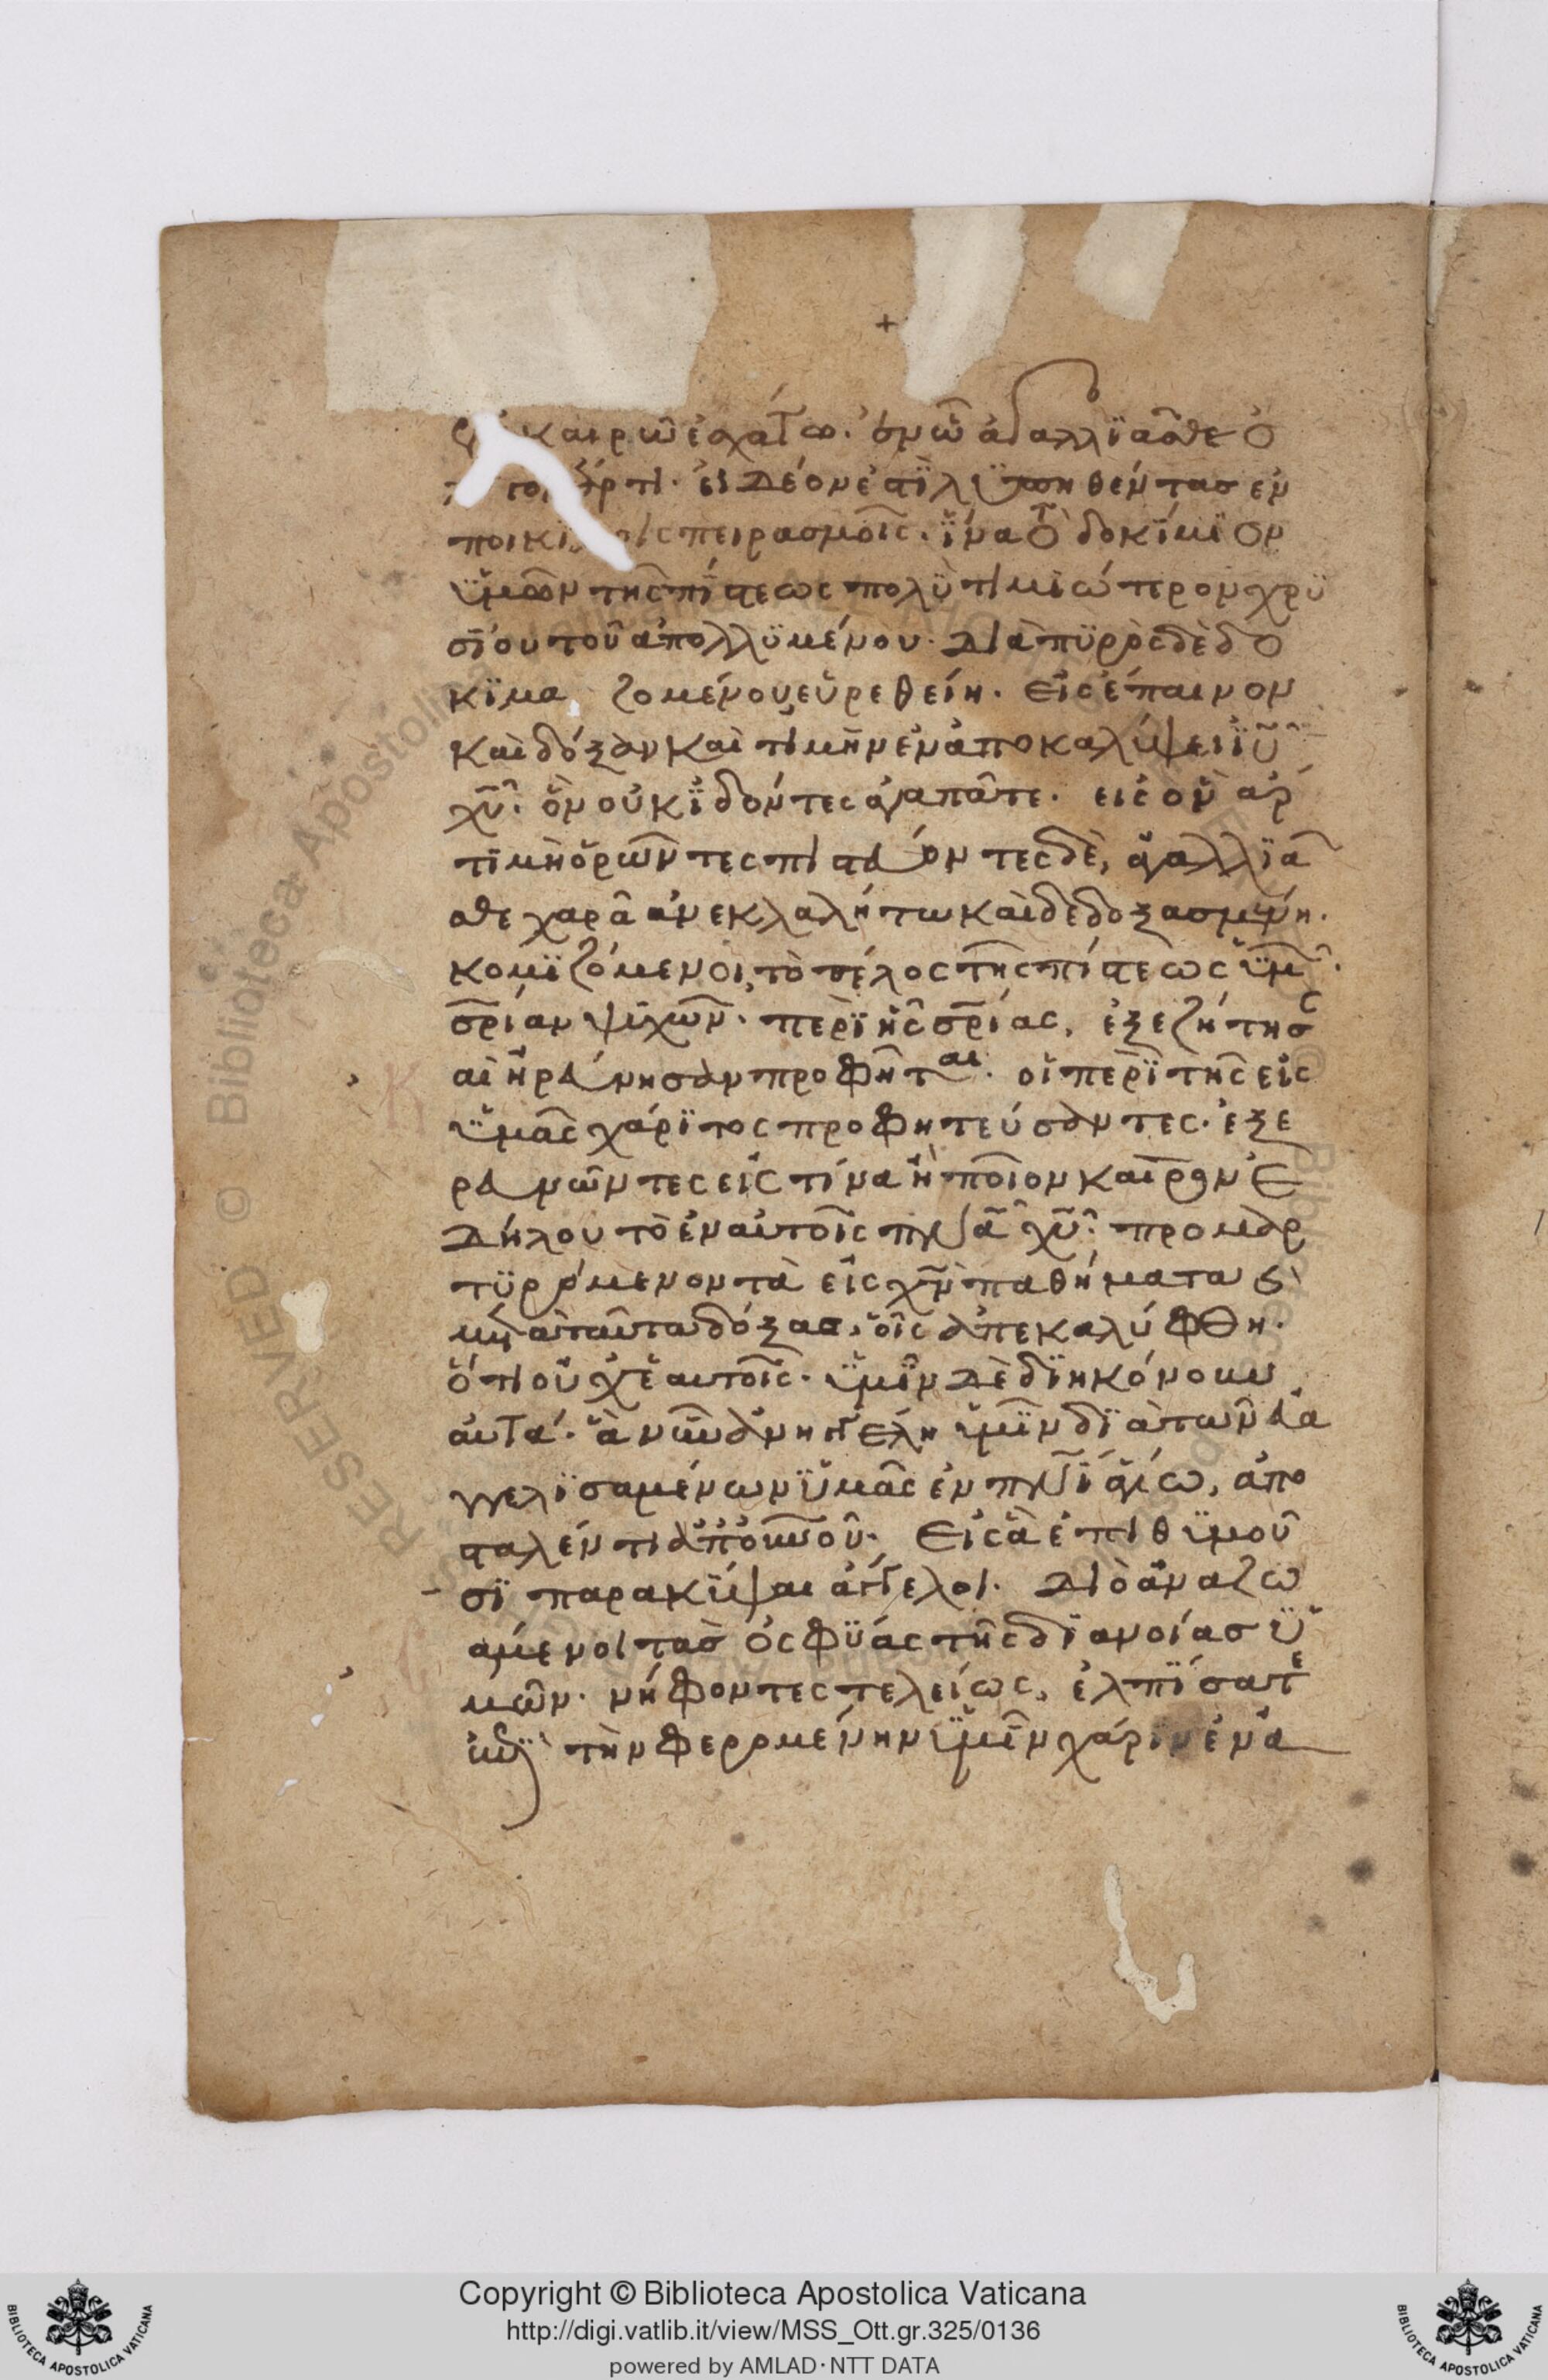 +
ἐν καιρῶ ἐσχάτω. ἐν ὧ ἀγαλλϊᾶσθε ὀ
λίγον ἄρτι. εἰ δέον ἐστῒ λϋπηθέντας ἐν
ποικίλοις πειρασμοῖς. ἵνα τὸ δοκίμϊον
ϋμῶν τῆς πίστεως πολϋτιμιώτερον χρϋ
σΐου τοῦ ἀπολλϋμένου. διὰ πϋρὸς δὲ δο
κϊμαζομένου, εὑρεθείη. εἰς ἔπαινον
καὶ δόξαν καὶ τιμὴν ἐν ἀποκαλύψει ϊῦ
χῦ. ὃν οὐκ ϊδόντες ἀγαπᾶτε. εις ὃν ἄρ
τϊ μὴ ὁρῶντες πιστεύοντες δὲ, ἀγαλλϊᾶ
σθε χαρᾶ ἀνεκλαλήτω καὶ δεδοξασμένη.
κομϊζόμενοι, τὸ τέλος τῆς πίστεως ϋμῶ.
σρίαν ψϋχῶν. περὶ ἧς σρίας, ἐξεζήτησ
αὶ ἠρεύνησαν προφῆται. οἱ περὶ τῆς εἰς
ϋμᾶς χάρϊτος προφητεύσαντες. ἐξε
ρευνῶντες εἰς τίνα ἢ ποῖον καιρὸν ἐ
δήλου τὸ ἐν αὐτοῖς πνᾶ χῦ. προμαρ
τϋρόμενον τὰ εἰς χν παθήματα καὶ
μετὰ ταῦτα δόξας. οἷς ἀπεκαλύφθη.
ὅτι οὐχ ἑαυτοῖς. ϋμῖν δὲ δϊηκόνουν
αὐτά. ἃ νῦν ἀνηγγέλη ϋμῖν δϊὰ τῶν εὐα
γγελϊσαμένων ϋμᾶς ἐν πνϊ ἁγίω, ἀπο
σταλέντι ἀπ οὐνοῦ. Εἰς ἃ ἐπιθϋμοῦ
σϊ παρακϋψαι ἄγγελοι. Διὸ ἀναζω
σάμενοι τὰς ὀσφϋας τῆς δϊανοίας ϋ
μῶν. νήφοντες τελείως, ἐλπΐσατε
ἐπὶ τὴν φερομένην ϋμῖν χάριν ἐν ἀ
RESERVED © Biblioteca Apostolica
Copyright © Biblioteca Apostolica Vaticana
http://digi.vatlib.it/view/MSS_Ott.gr.325/0136
powered by AMLAD·NTT DATA
BIBLIOTECA APOSTOLICA VATICANA
BIBLIOTECA APOSTOLICA VATICANA